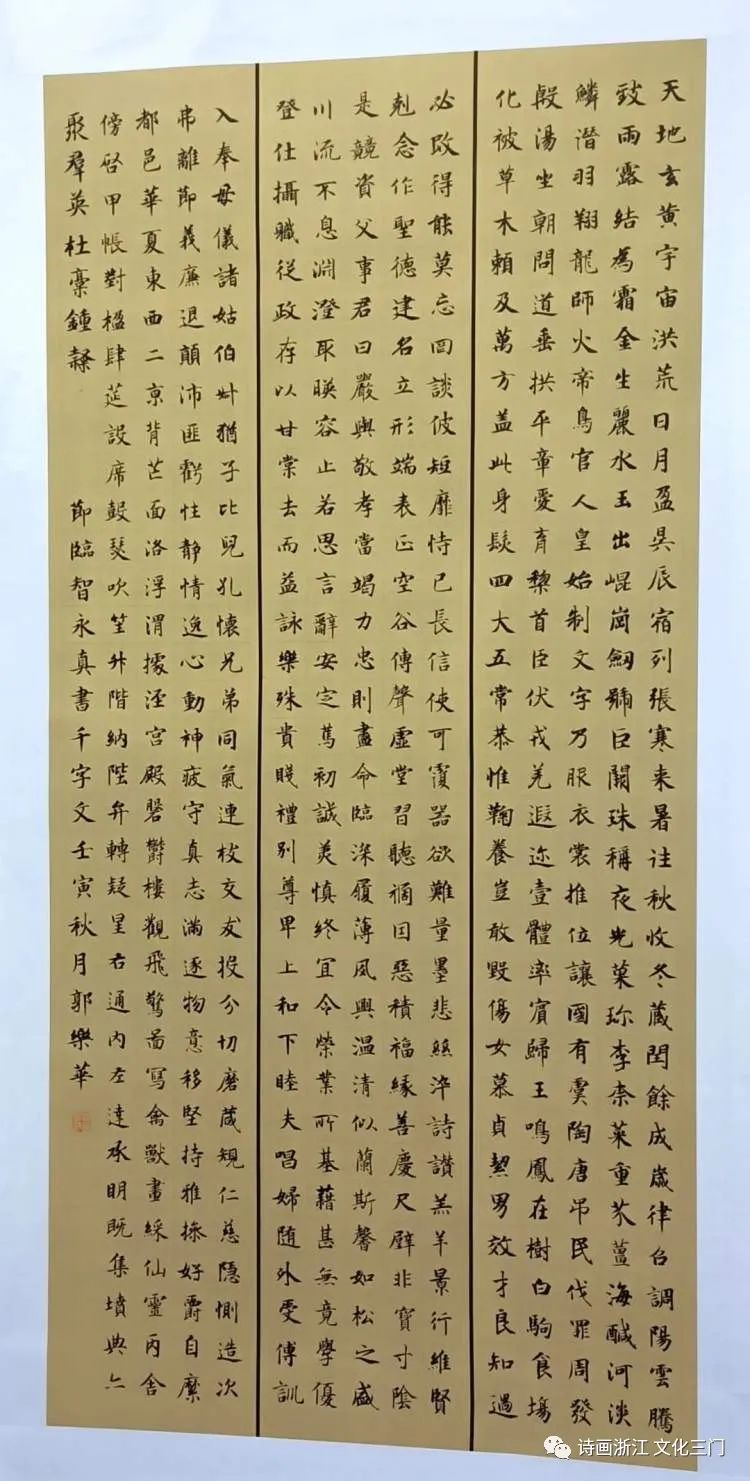 天地玄黃宇宙洪荒日月盈昃辰宿列張寒来暑往秋收冬藏閏餘成歲律呂調陽雲騰
致雨露結為霜金生麗水玉出崐崗劒號巨闕珠稱夜光菓珍李柰菜重芥薑海醎河淡
鱗潛羽翔龍師火帝鳥官人皇始制文字乃服衣裳推位讓國有虞陶唐弔民伐罪周發
殷湯坐朝問道垂拱平章愛育黎首臣伏戎羌遐迩壹體率賓歸王鳴鳳在樹白駒食場
化被草木賴及萬方盖此身髮四大五常恭惟鞠養豈敢毀傷女慕貞絜男效才良知過
必改得能莫忘罔談彼短靡恃己長信使可覆器欲難量墨悲絲淬詩讚羔羊景行維賢
剋念作聖德建名立形端表正空谷傳聲虛堂習聽禍因惡積福緣善慶尺璧非寶寸陰
是競資父事君曰嚴與敬孝當竭力忠則盡命臨深履薄夙興溫清似蘭斯馨如松之盛
川流不息淵澄取暎容止若思言辭安定篤初誠美慎終宜令榮業所基藉甚無竟學優
登仕攝職從政存以甘棠去而益詠樂殊貴賤禮別尊卑上和下睦夫唱婦随外受傅訓
入奉母儀諸姑伯叔猶子比兒孔懷兄弟同氣連枝交友投分切磨箴規仁慈隱惻造次
弗離節義廉退顛沛匪虧性靜情逸心動神疲守真志滿逐物意移堅持雅操好爵自縻
都邑華夏東西二京背芒面洛浮渭據涇宮殿磐鬱樓觀飛驚圖寫禽獸畫綵仙靈丙舍
傍啓甲帳對楹肆筵設席鼓瑟吹笙升階納陛弁轉疑星右通內左達承明既集墳典亦
聚群英杜稾鍾隸 節臨智永真書千字文壬寅秋月郭樂華
诗画浙江 文化三门